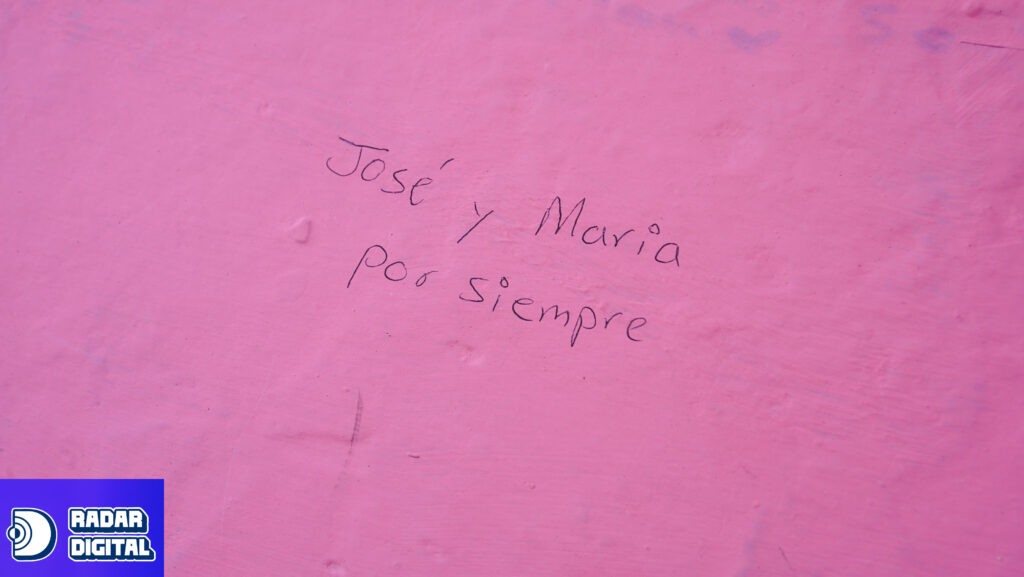 José y Maria
por siempre
RADAR
DIGITAL